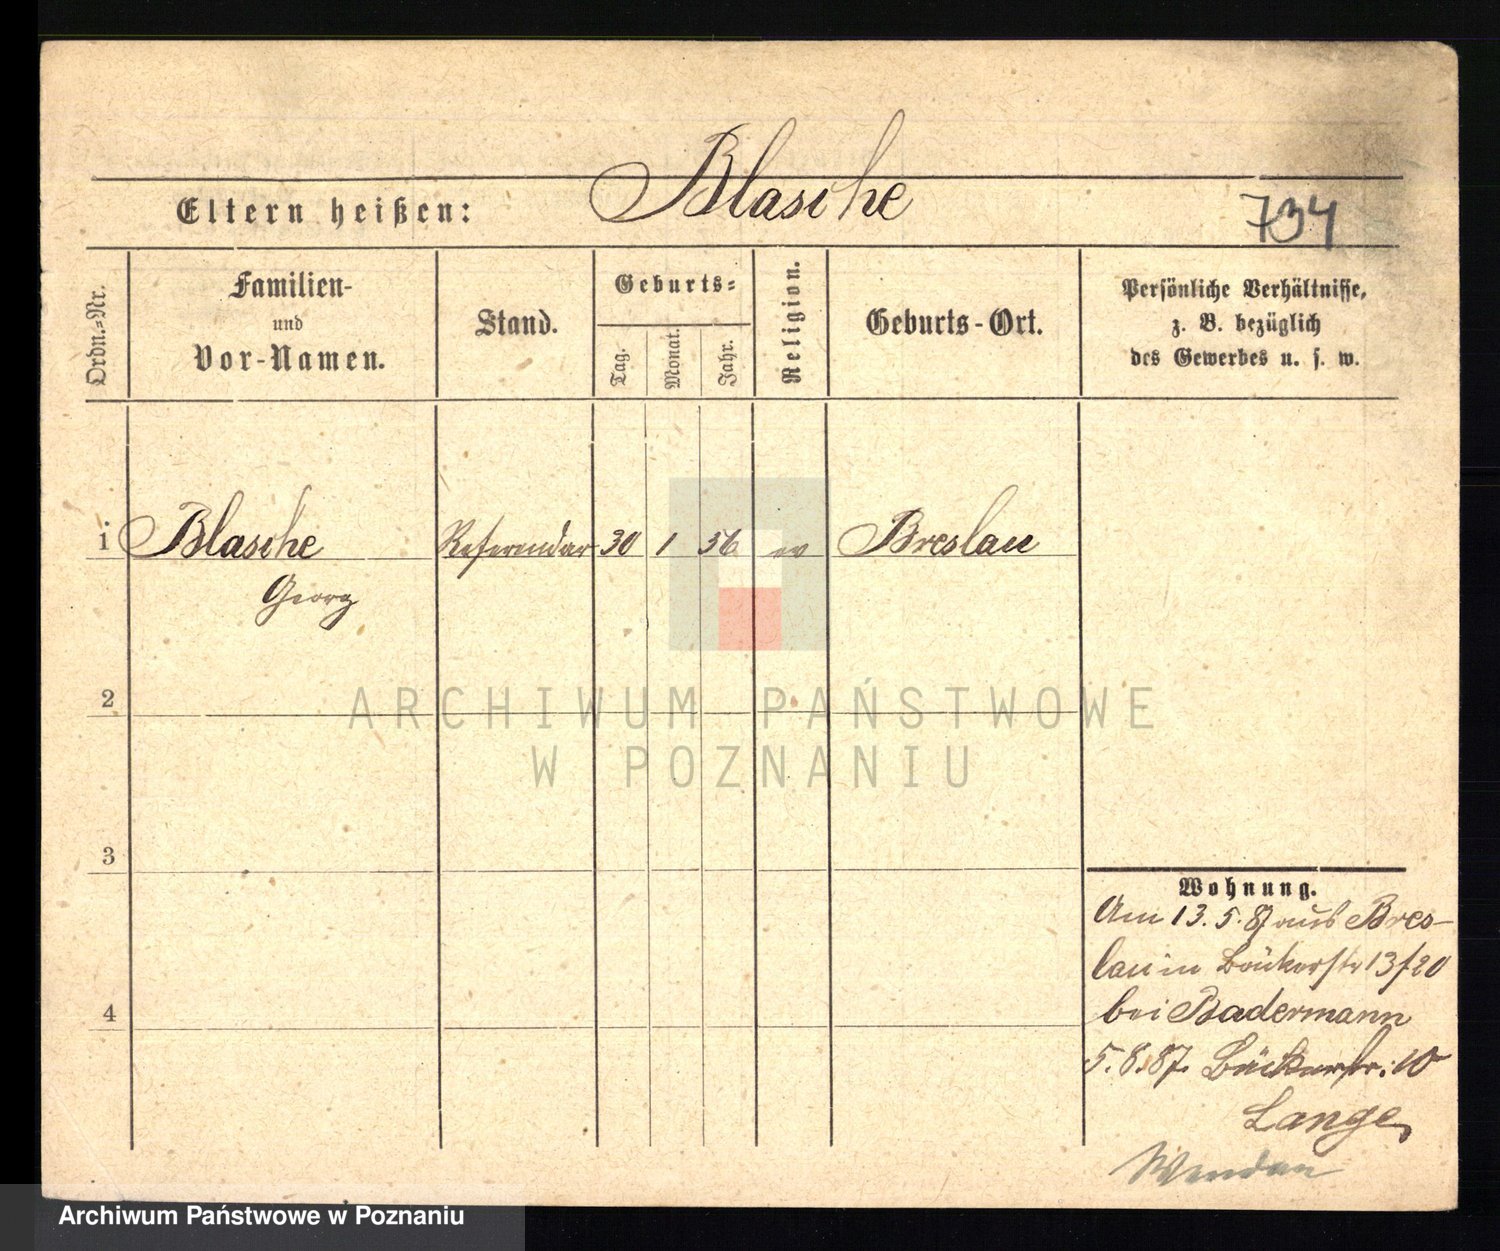 Blasche
Eltern heißen:
734
Ordn=Nr.
Familien-
und
Vor-Namen.
Stand.
Geburts=
Tag.
Monat.
Jahr.
Religion.
Geburts-Ort.
Persönliche Verhältnisse,
z. B. bezüglich
des Gewerbes u. s. w.
1 Blasche Referendar 30 1 56 ev Breslau
Georg
2
ARCHIWUM PAŃSTWOWE
W POZNANIU
3
Wohnung.
Am 13.5.87 aus Bres-
lau in Bäckerstr 13/20
bei Badermann
4
5.8.87. Bäckerstr. 10
Lange
Archiwum Państwowe w Poznaniu